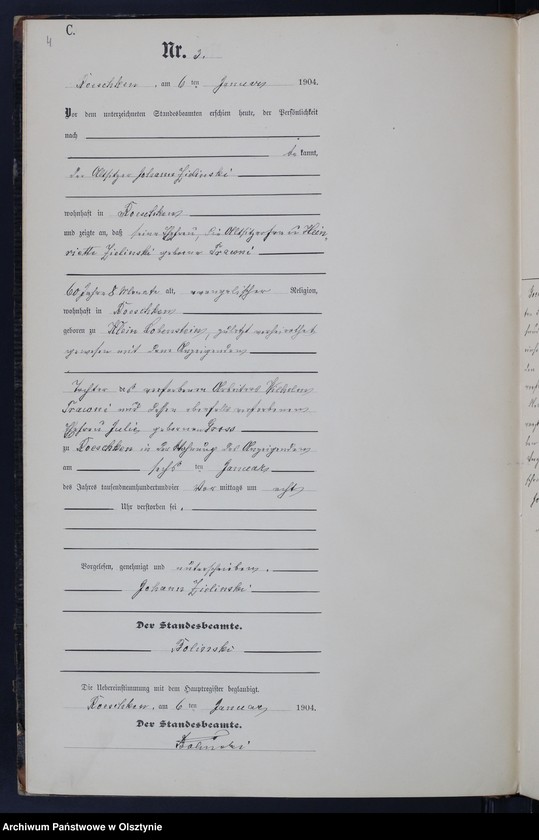 4
C.
Nr. 3.
Korschken, am 6 ten Januar 1904.
Vor dem unterzeichneten Standesbeamten erschien heute, der Persönlichkeit
nach
be kannt,
der Altsitzer Johann Zielinski
wohnhaft in Korschken
und zeigte an, daß seine Ehefrau, die Altsitzerfrau Hein-
riette Zielinski geborene
60 Jahre 8 Monate alt, evangelischer Religion,
wohnhaft in Korschken
geboren zu Klein Lobenstein, zuletzt verheirathet
gewesen mit dem Anzeigenden
Tochter des verstorbenen Arbeiters Wilhelm
und dessen ebenfalls verstorbenen
Ehefrau Julie geborenen Gross
zu Korschken in der Wohnung des Anzeigenden
am sechs ten Januar
des Jahres tausendneunhundertundvier Vor mittags um acht
Uhr verstorben sei.
Vorgelesen, genehmigt und unterschrieben.
Johann Zielinski
Der Standesbeamte.
Die Uebereinstimmung mit dem Hauptregister beglaubigt.
Korschken, am 6 ten Januar 1904.
Der Standesbeamte.
Archiwum Państwowe w Olsztynie